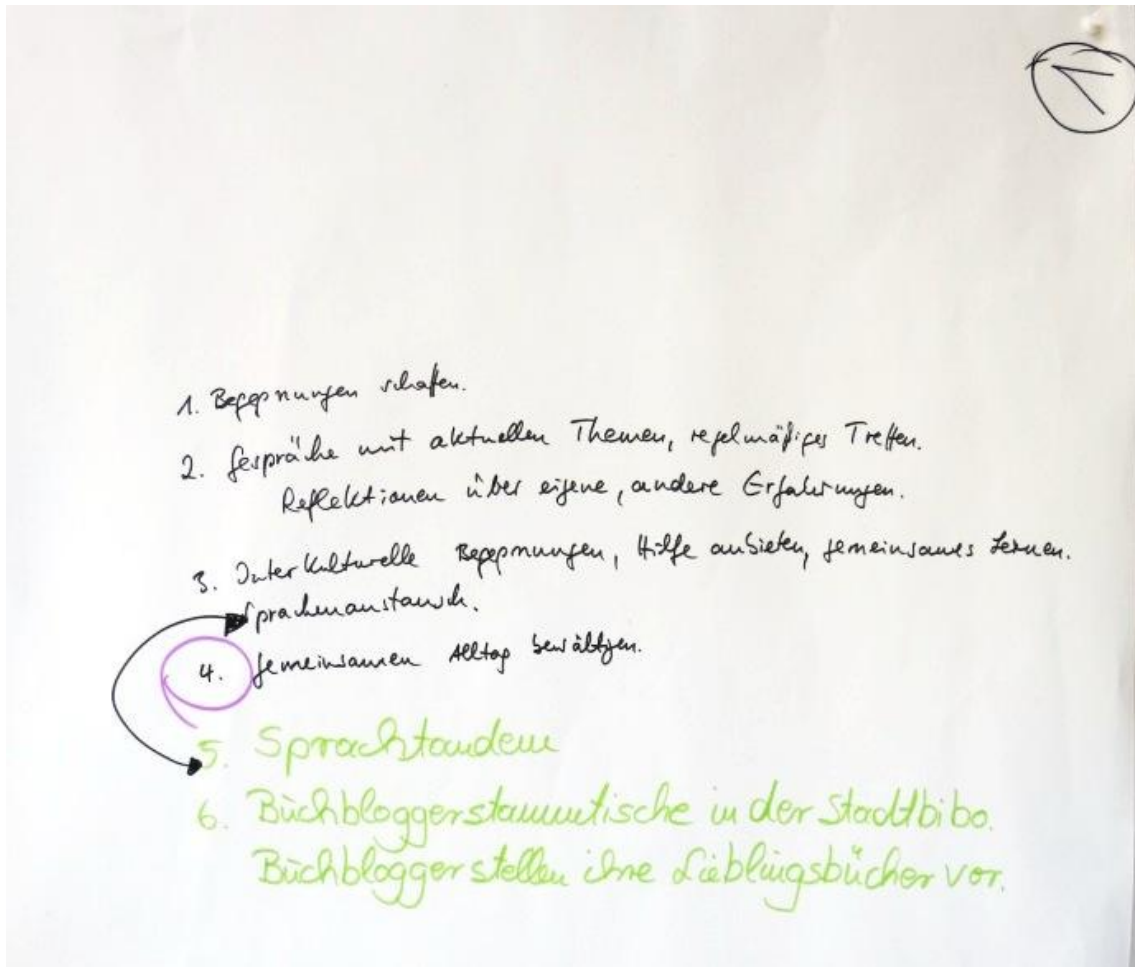 1. Begegnungen schaffen.
2. Gespräche mit aktuellen Themen, regelmäßiges Treffen.
Reflektionen über eigene, andere Erfahrungen.
3. Interkulturelle Begegnungen, Hilfe anbieten, gemeinsames Lernen.
Sprachenaustausch.
4. Gemeinsamen Alltag bewältigen.
5. Sprachtandem
6. Buchbloggerstammtische in der Stadtbibo.
Buchblogger stellen ihre Lieblingsbücher vor.